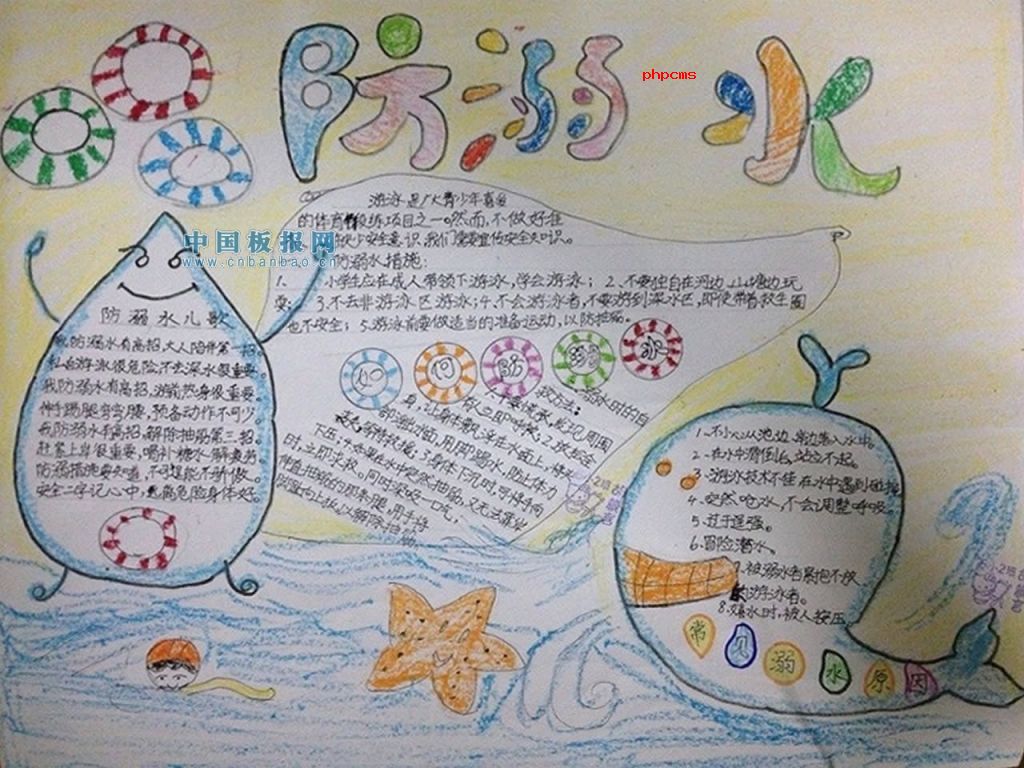 防溺水
phpcms
中国板报网
www.cnbanbao.cn
游泳是广大青少年喜爱
的体育锻练项目之一。然而,不做好准
缺少安全意识,我们需要宣传安全知识。
防溺水措施:
1. 小学生应在成人带领下游泳,学会游泳;2.不要独自在河边、山塘边玩
耍;3.不去非游泳区游泳;4.不会游泳者,不要游到深水区,即使带着救生圈
也不安全;5.游泳前要做适当的准备运动,以防抽筋。
如何防溺水
溺水时的自
救方法:
1.不要慌张,发现周围
有人立即呼救;2.放松全
身,让身体飘浮在水面上,将头
部浮出水面,用脚踢水,防止体力
丧失,等待救援;3.身体下沉时,可将手向
下压;4.如果在水中突然抽筋,又无法靠岸
时,立即求救。同时深吸一口气,
伸直抽筋的那条腿,用手将
以解除抽筋
防溺水儿歌
我防溺水有高招,大人陪伴第一招。
私自游泳很危险,不去深水很重要。
我防溺水有高招,游前热身很重要。
伸手踢腿弯弯腰,预备动作不可少。
我防溺水有高招,解除抽筋第三招。
赶紧上岸很重要,喝补糖水解疲劳。
防溺措施要知道,不可逞能不骄傲。
安全二字记心中,远离危险身体好。
1.不小心从池边、岸边落入水中。
2.在水中滑倒后,站立不起。
3.游泳技术不佳,在水中遇到碰撞
4.突然呛水,不会调整呼吸。
5.过于逞强。
6.冒险潜水。
7.被溺水者紧抱不放
的游泳者。
8.嬉水时,被人按压
常见溺水原因